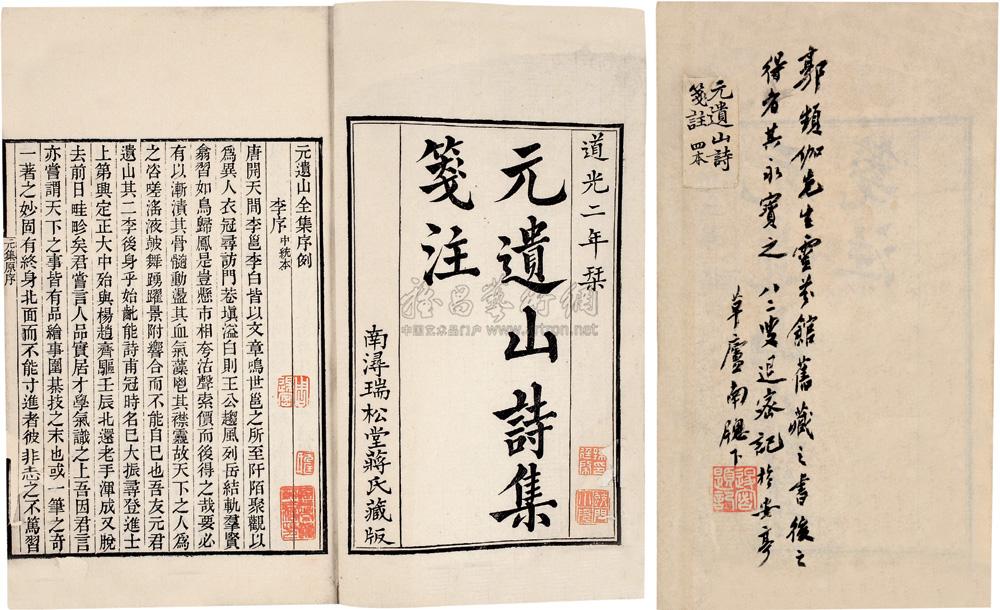 郭頻伽先生靈芬館舊藏之書後之
得者其永寶之 八二叟退密記於安亭
草廬南牕下
元遺山詩
箋註 四本
道光二年栞
元遺山詩集
箋注
南潯瑞松堂蔣氏藏版
元遺山全集序例
李序 中統本
唐開天間李邕李白皆以文章鳴世邕之所至阡陌聚觀以
為異人衣冠尋訪門巷填溢白則王公趨風列岳結軌羣賢
翕習如鳥歸鳳是豈懸市相夸沽聲索價而後得之哉要必
有以漸漬其骨髓動盪其血氣藻鬯其襟靈故天下之人為
之咨嗟滛液皷舞踴躍景附響合而不能自已也吾友元君
遺山其二李後身乎始齔能詩甫冠時名已大振尋登進士
上第興定正大中始與楊趙齊驅壬辰北還老手渾成又脫
去前日畦畛矣君嘗言人品實居才學氣識之上吾因君言
亦嘗謂天下之事皆有品繪事圍棊技之末也或一筆之奇
一著之妙固有終身北面而不能寸進者彼非志之不篤習
元集原序
雅昌藝術網
中国艺术品门户 www.artron.net